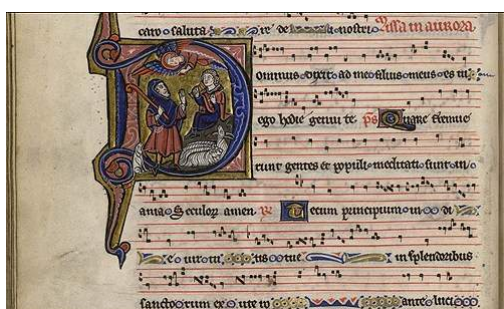 caro saluta re de nostri Missa in aurora
Dominus dixit ad me filius meus es tu
ego hodie genui te ps Quare fremue
runt gentes et populi meditati sunt in
ania Seculorum amen Tecum principium in di
e virtu tis tue in splendoribus
sanctorum ex ute ro ante luci